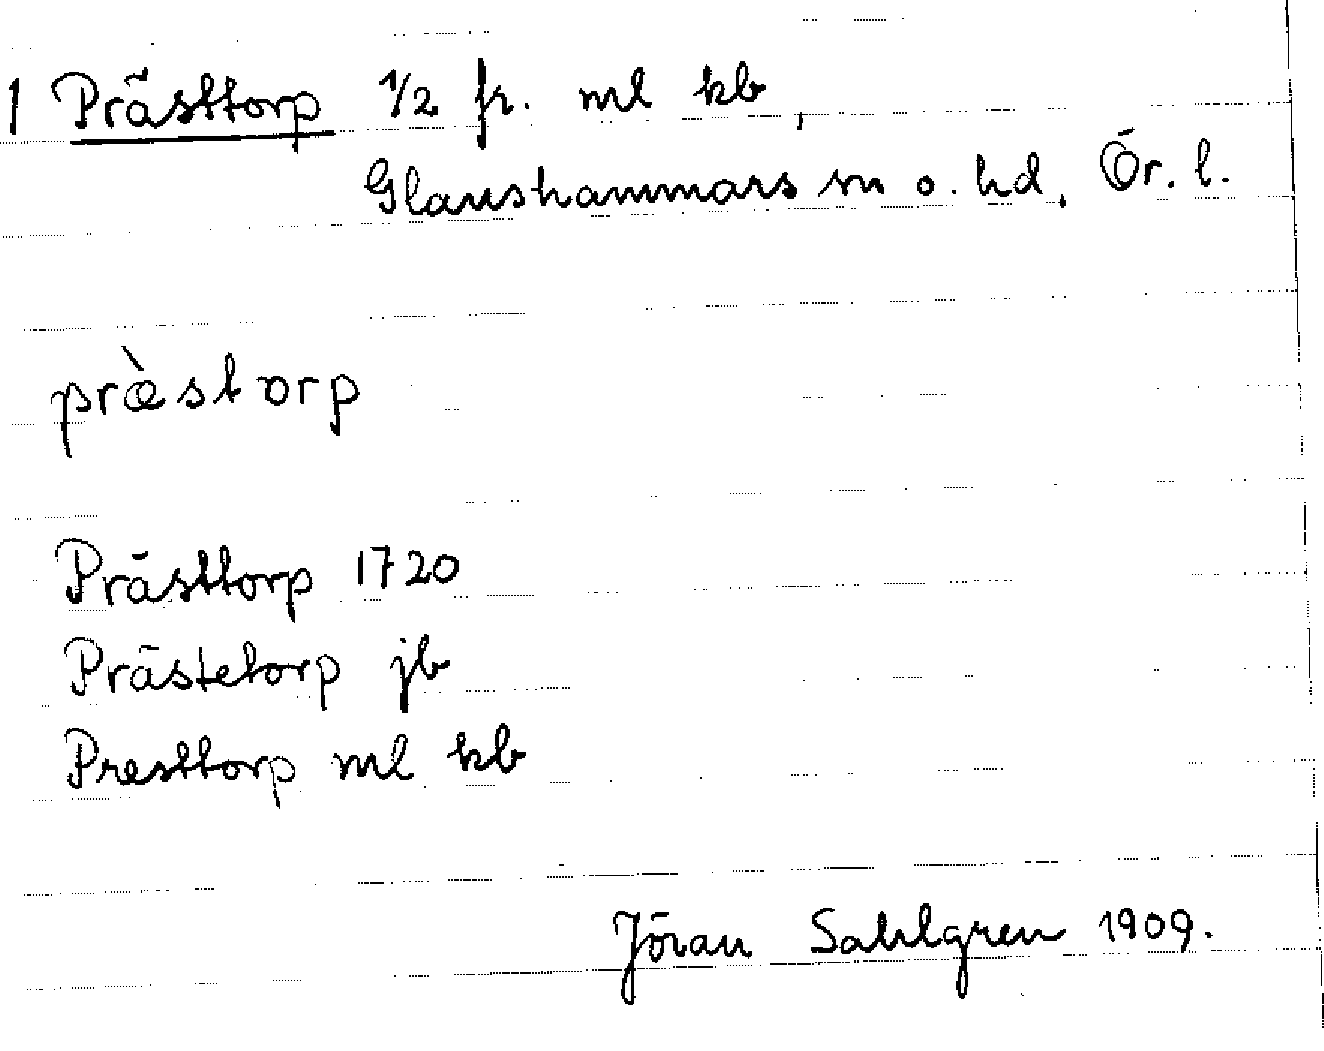 1 Prästtorp 1/2 fr. ml kb,
Glanshammars sn o. hd, Ör. l.
pràestorp
Prästtorp 1720
Prästetorp jb
Presttorp ml kb
Jöran Sahlgren 1909.